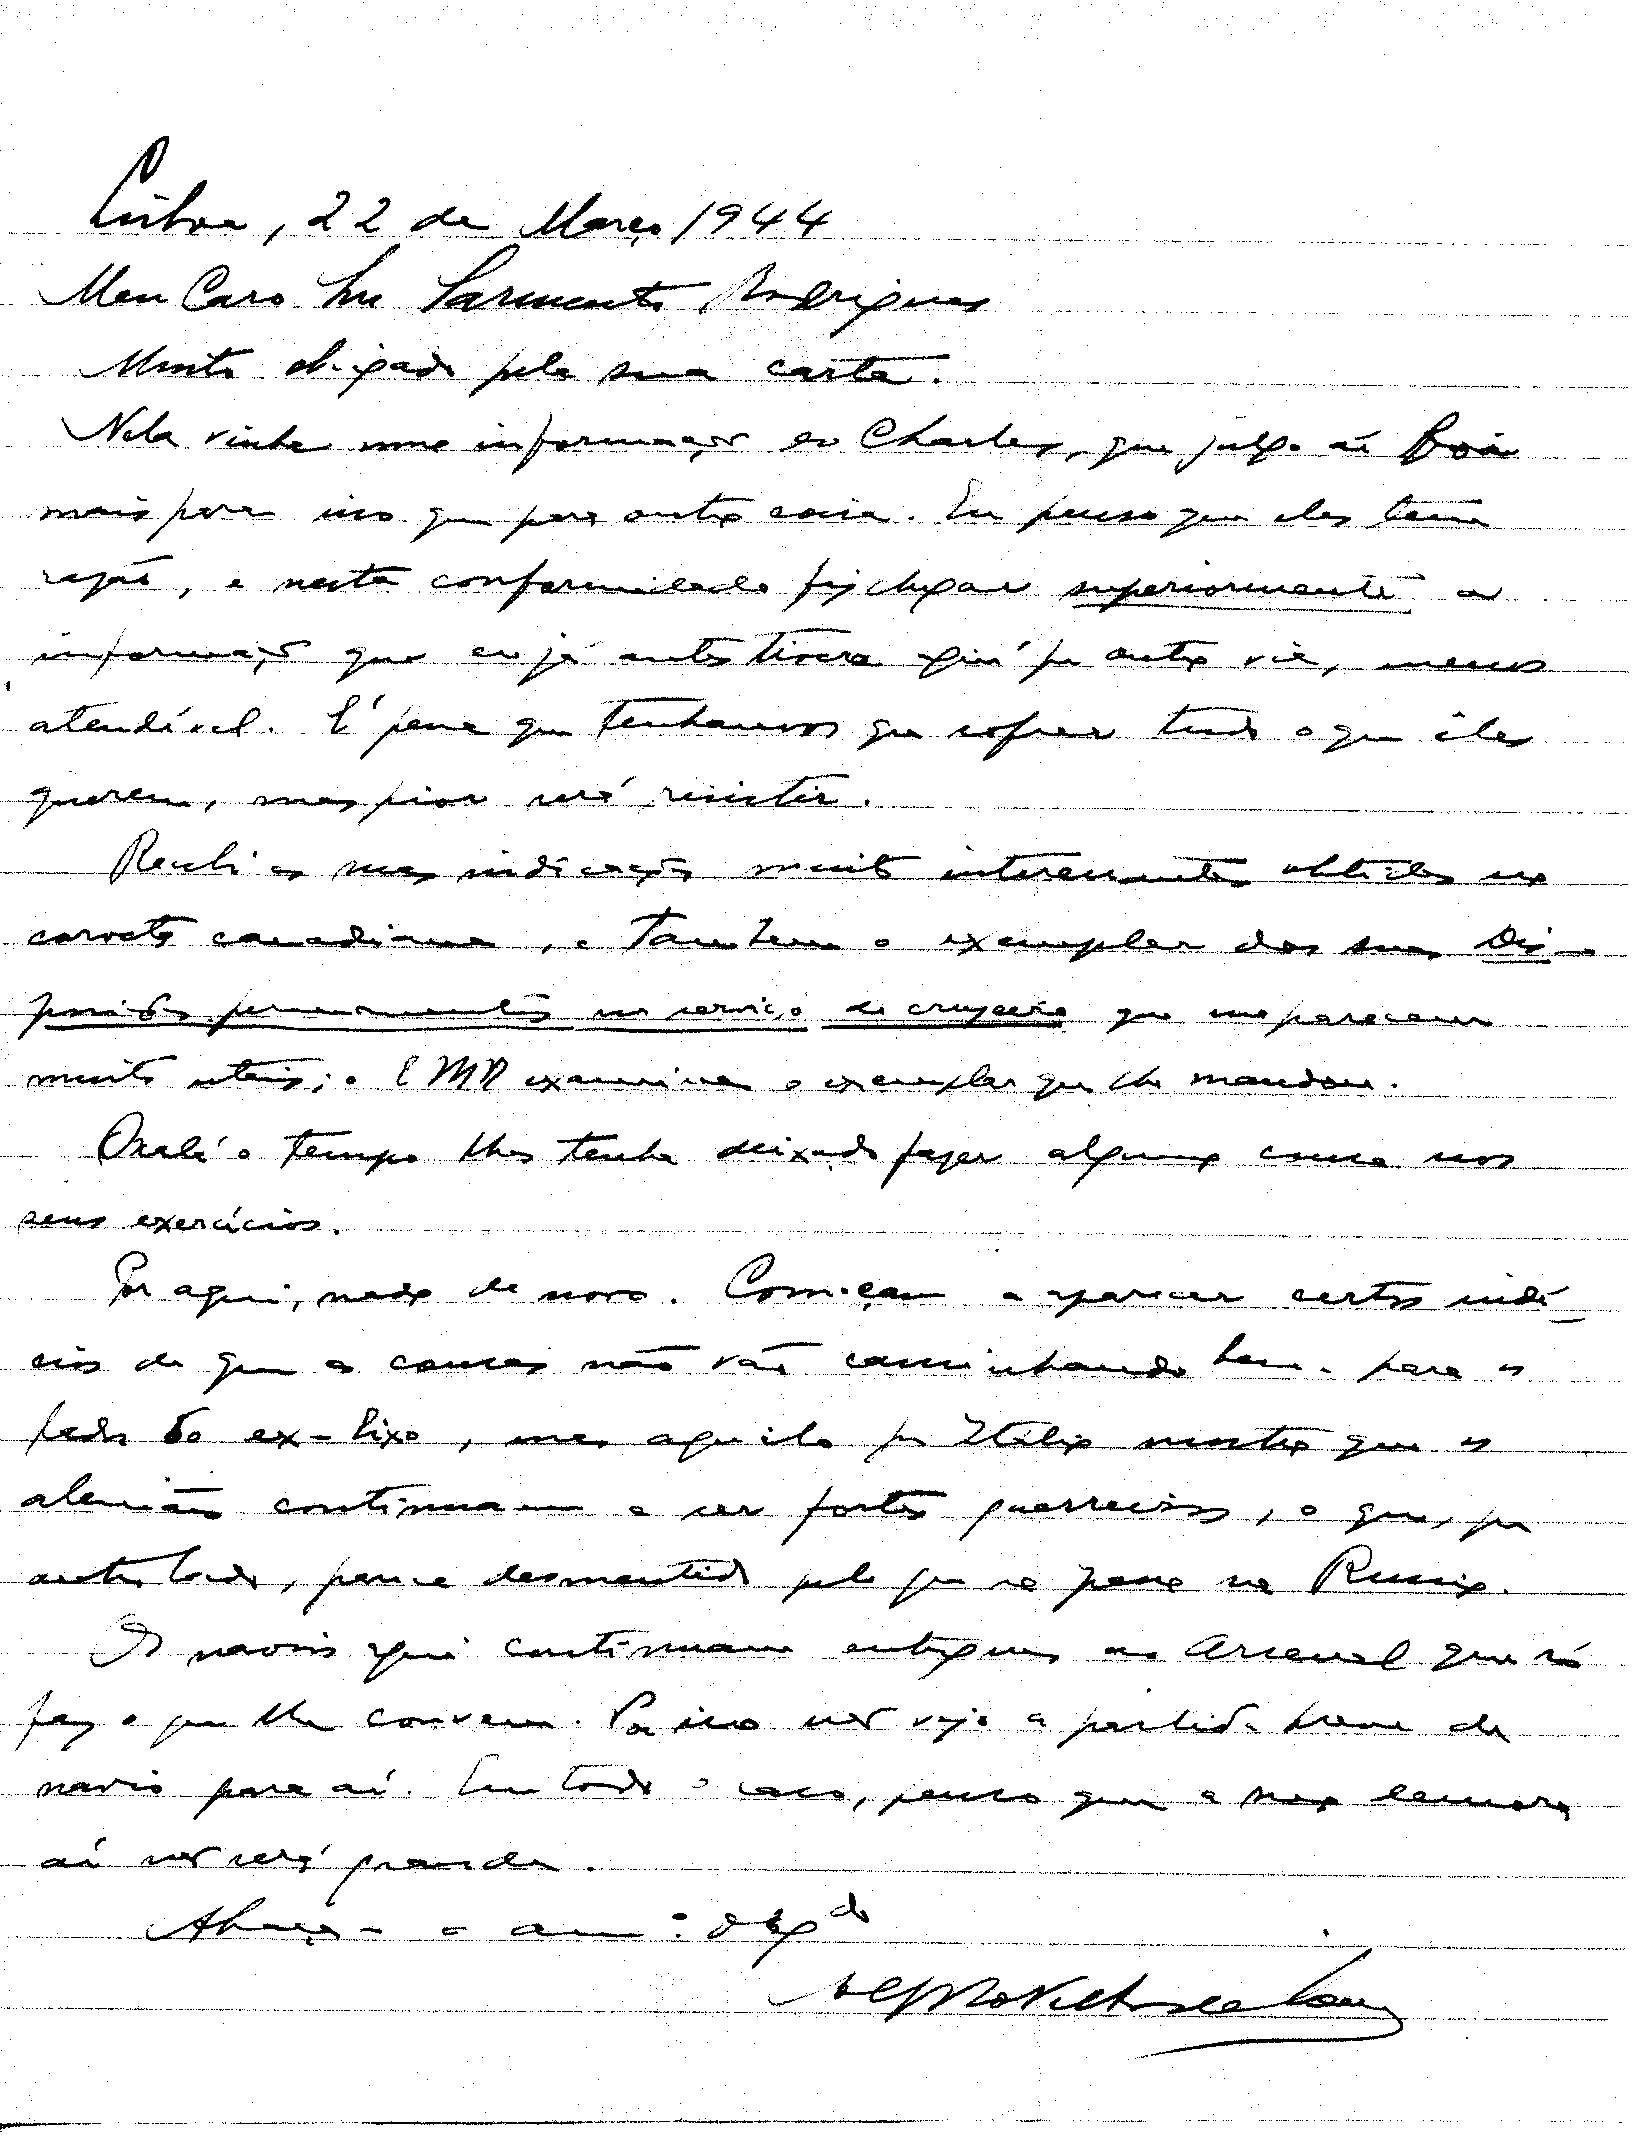 Lisboa, 22 de Março 1944
Meu Caro Snr Sarmento Rodrigues
Muito obrigado pela sua carta.
Nela vinha uma informação do Charles, que julgo aí
mais para isso que para outra coisa. Eu penso que eles teem
razão, e nesta conformidade fiz chegar superiormente a
informação que eu já antes tivera aqui por outra via, menos
atendível. É pena que tenhamos que sofrer tudo o que êles
querem, mas pior será resistir.
Recebi as suas indicações muito interessantes obtidas na
corveta canadiana, e tambem o exemplar das suas Dis-
posições permanentes no serviço de cruzeiro que me parecem
muito uteis; o EMN examina o exemplar que lhe mandou.
Oxalá o tempo lhes tenha deixado fazer alguma cousa nos
seus exercícios.
Por aqui, nada de novo. Começam a aparecer certos indí-
cios de que as cousas não vão caminhando bem para os
lados do ex-Eixo, mas aquilo por Itália mostra que os
alemães continuam a ser fortes guerreiros, o que, por
outro lado, parece desmentido pelo que se passa na Russia.
Os navios aqui continuam entregues ao Arsenal que só
faz o que lhe convem. Por isso não vejo a partida breve de
navio para aí. Em todo o caso, penso que a sua demora
aí não será grande.
Abraça-o o am.º obgdo